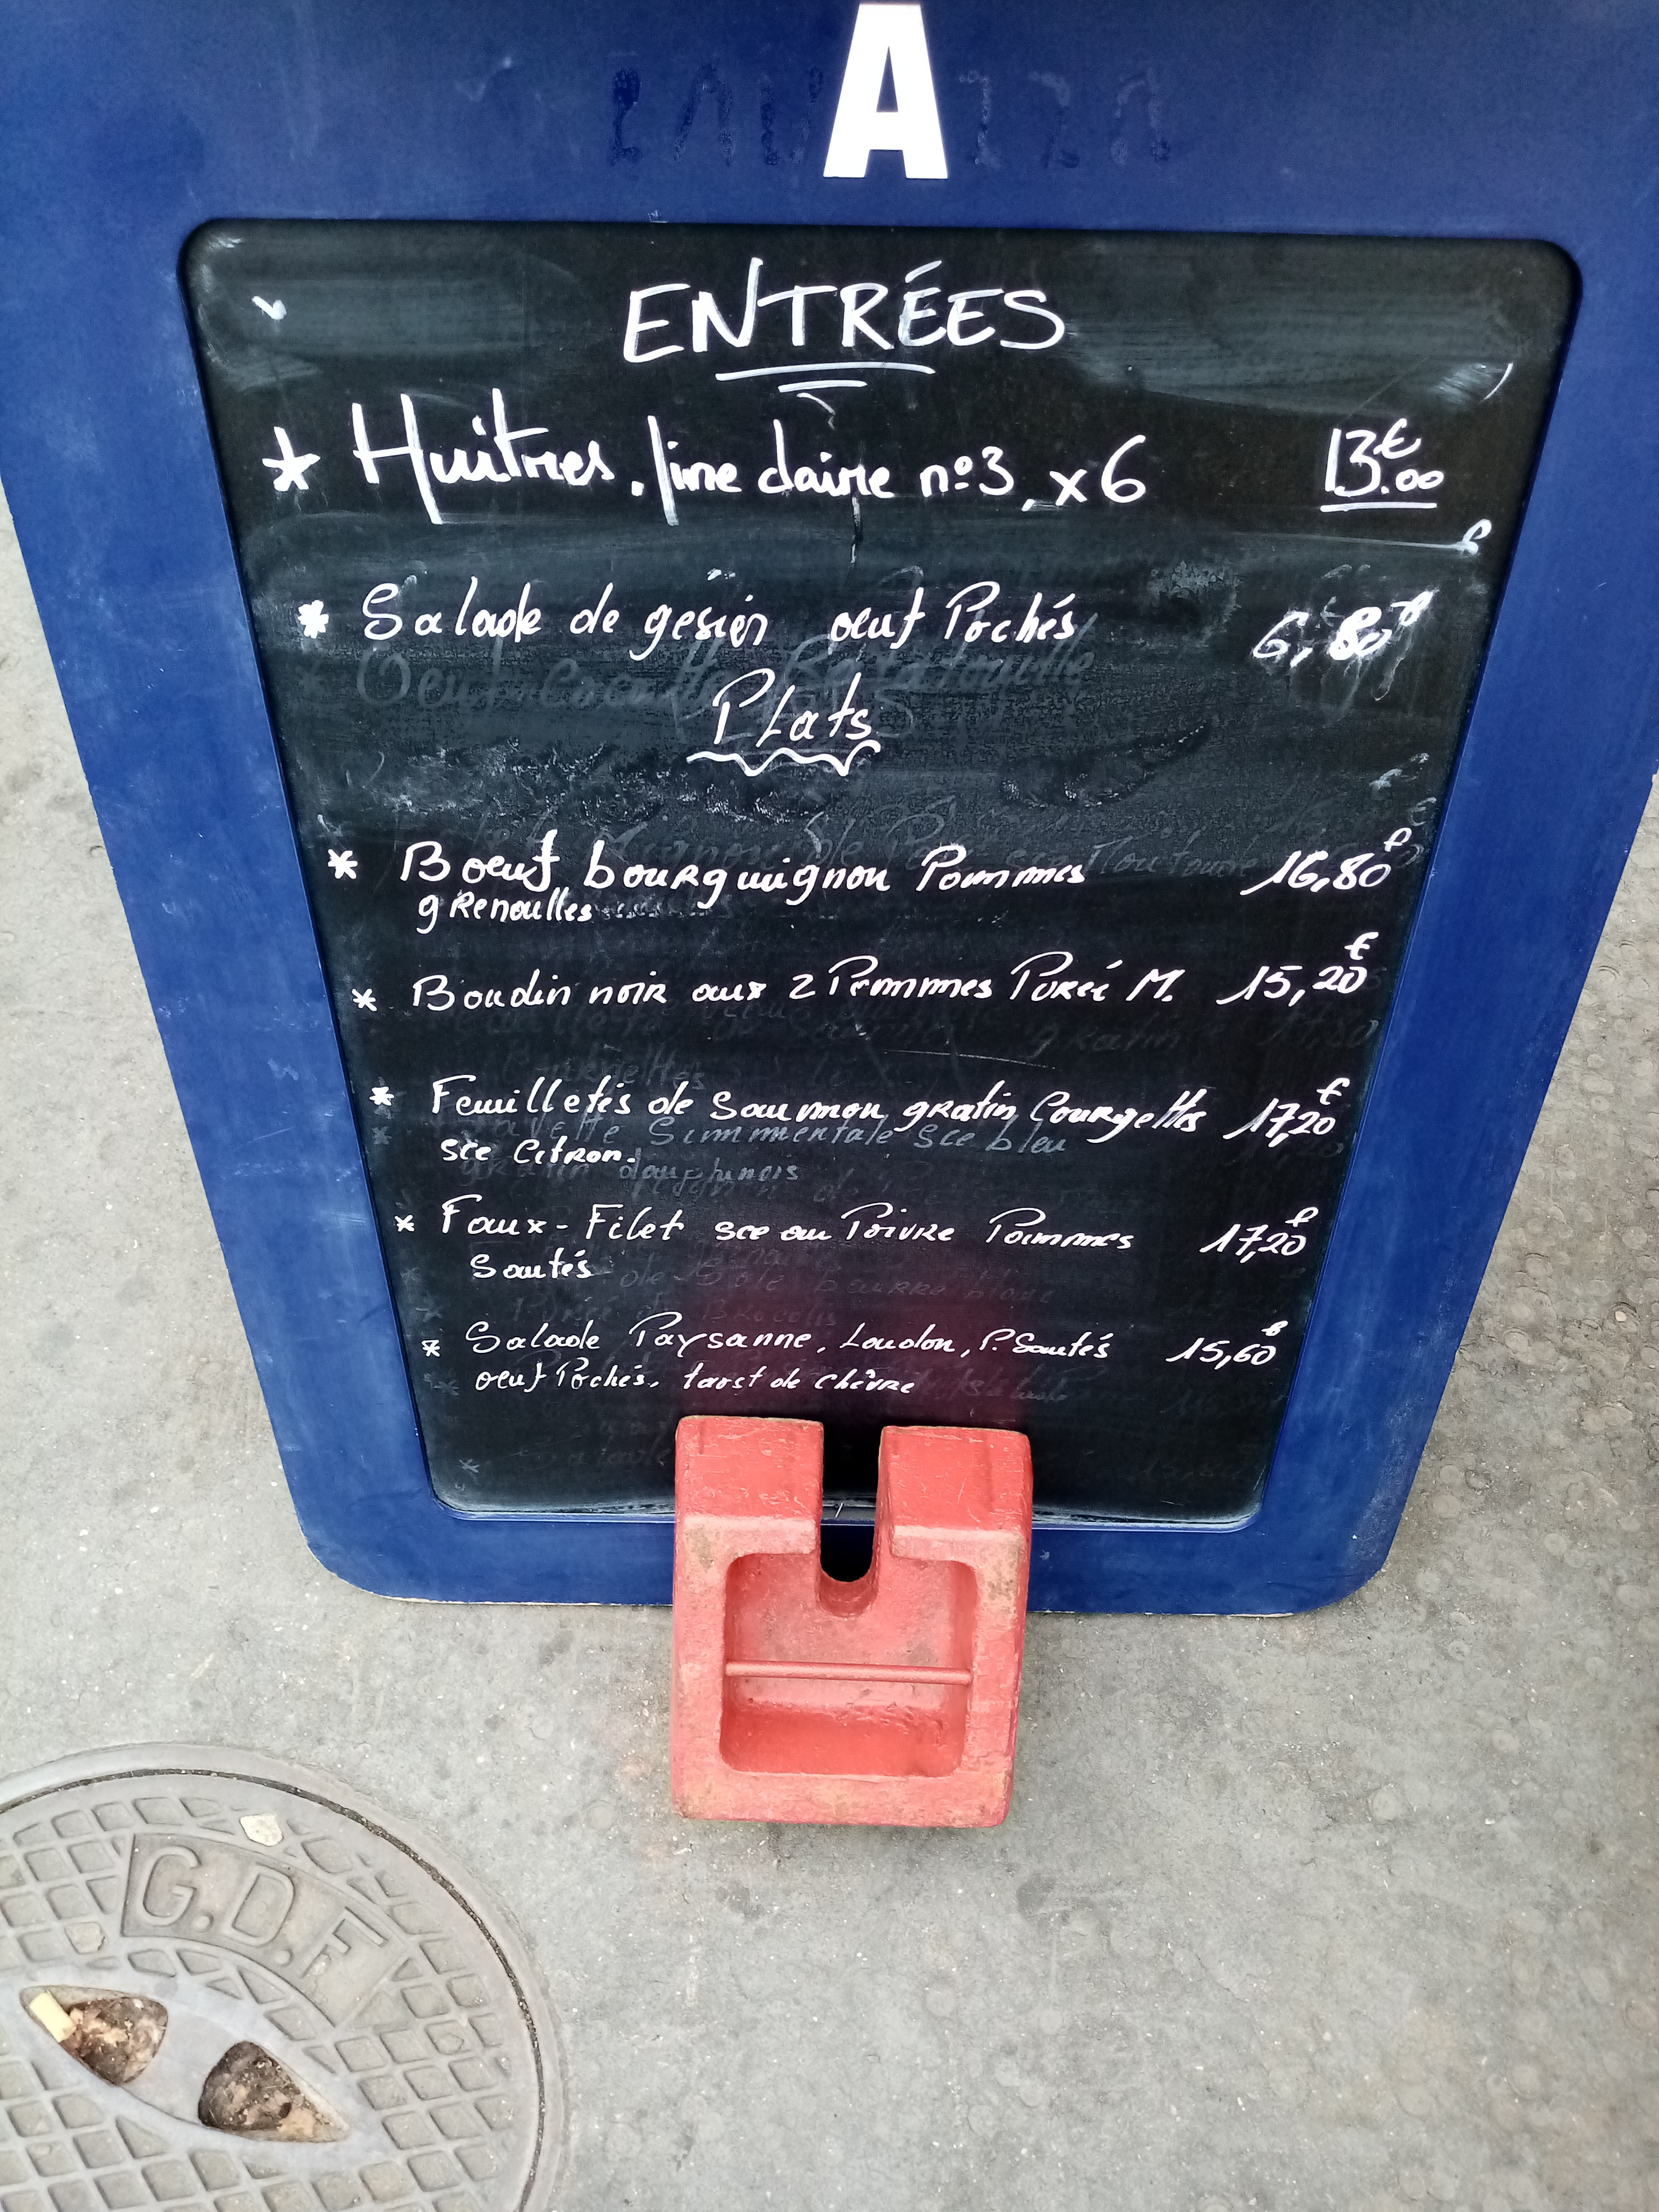 A
ENTRÉES
* Huîtres. fine claire n°3, x6 13.00€
* Salade de gesier oeuf Pochés 6,80€
Plats
* Boeuf bourguignon Pommes 16,80€
grenoulles
* Boudin noir aux 2 Pommes Purée M. 15,20€
* Feuilletés de Saumon gratin Courgettes 17,20€
sce Citron.
* Faux-Filet sce au Poivre Pommes 17,20€
Sautés
* Salade Paysanne, Laudon, P. Sautés 15,60€
oeuf Pochés, tarst de chèvre
G.D.F